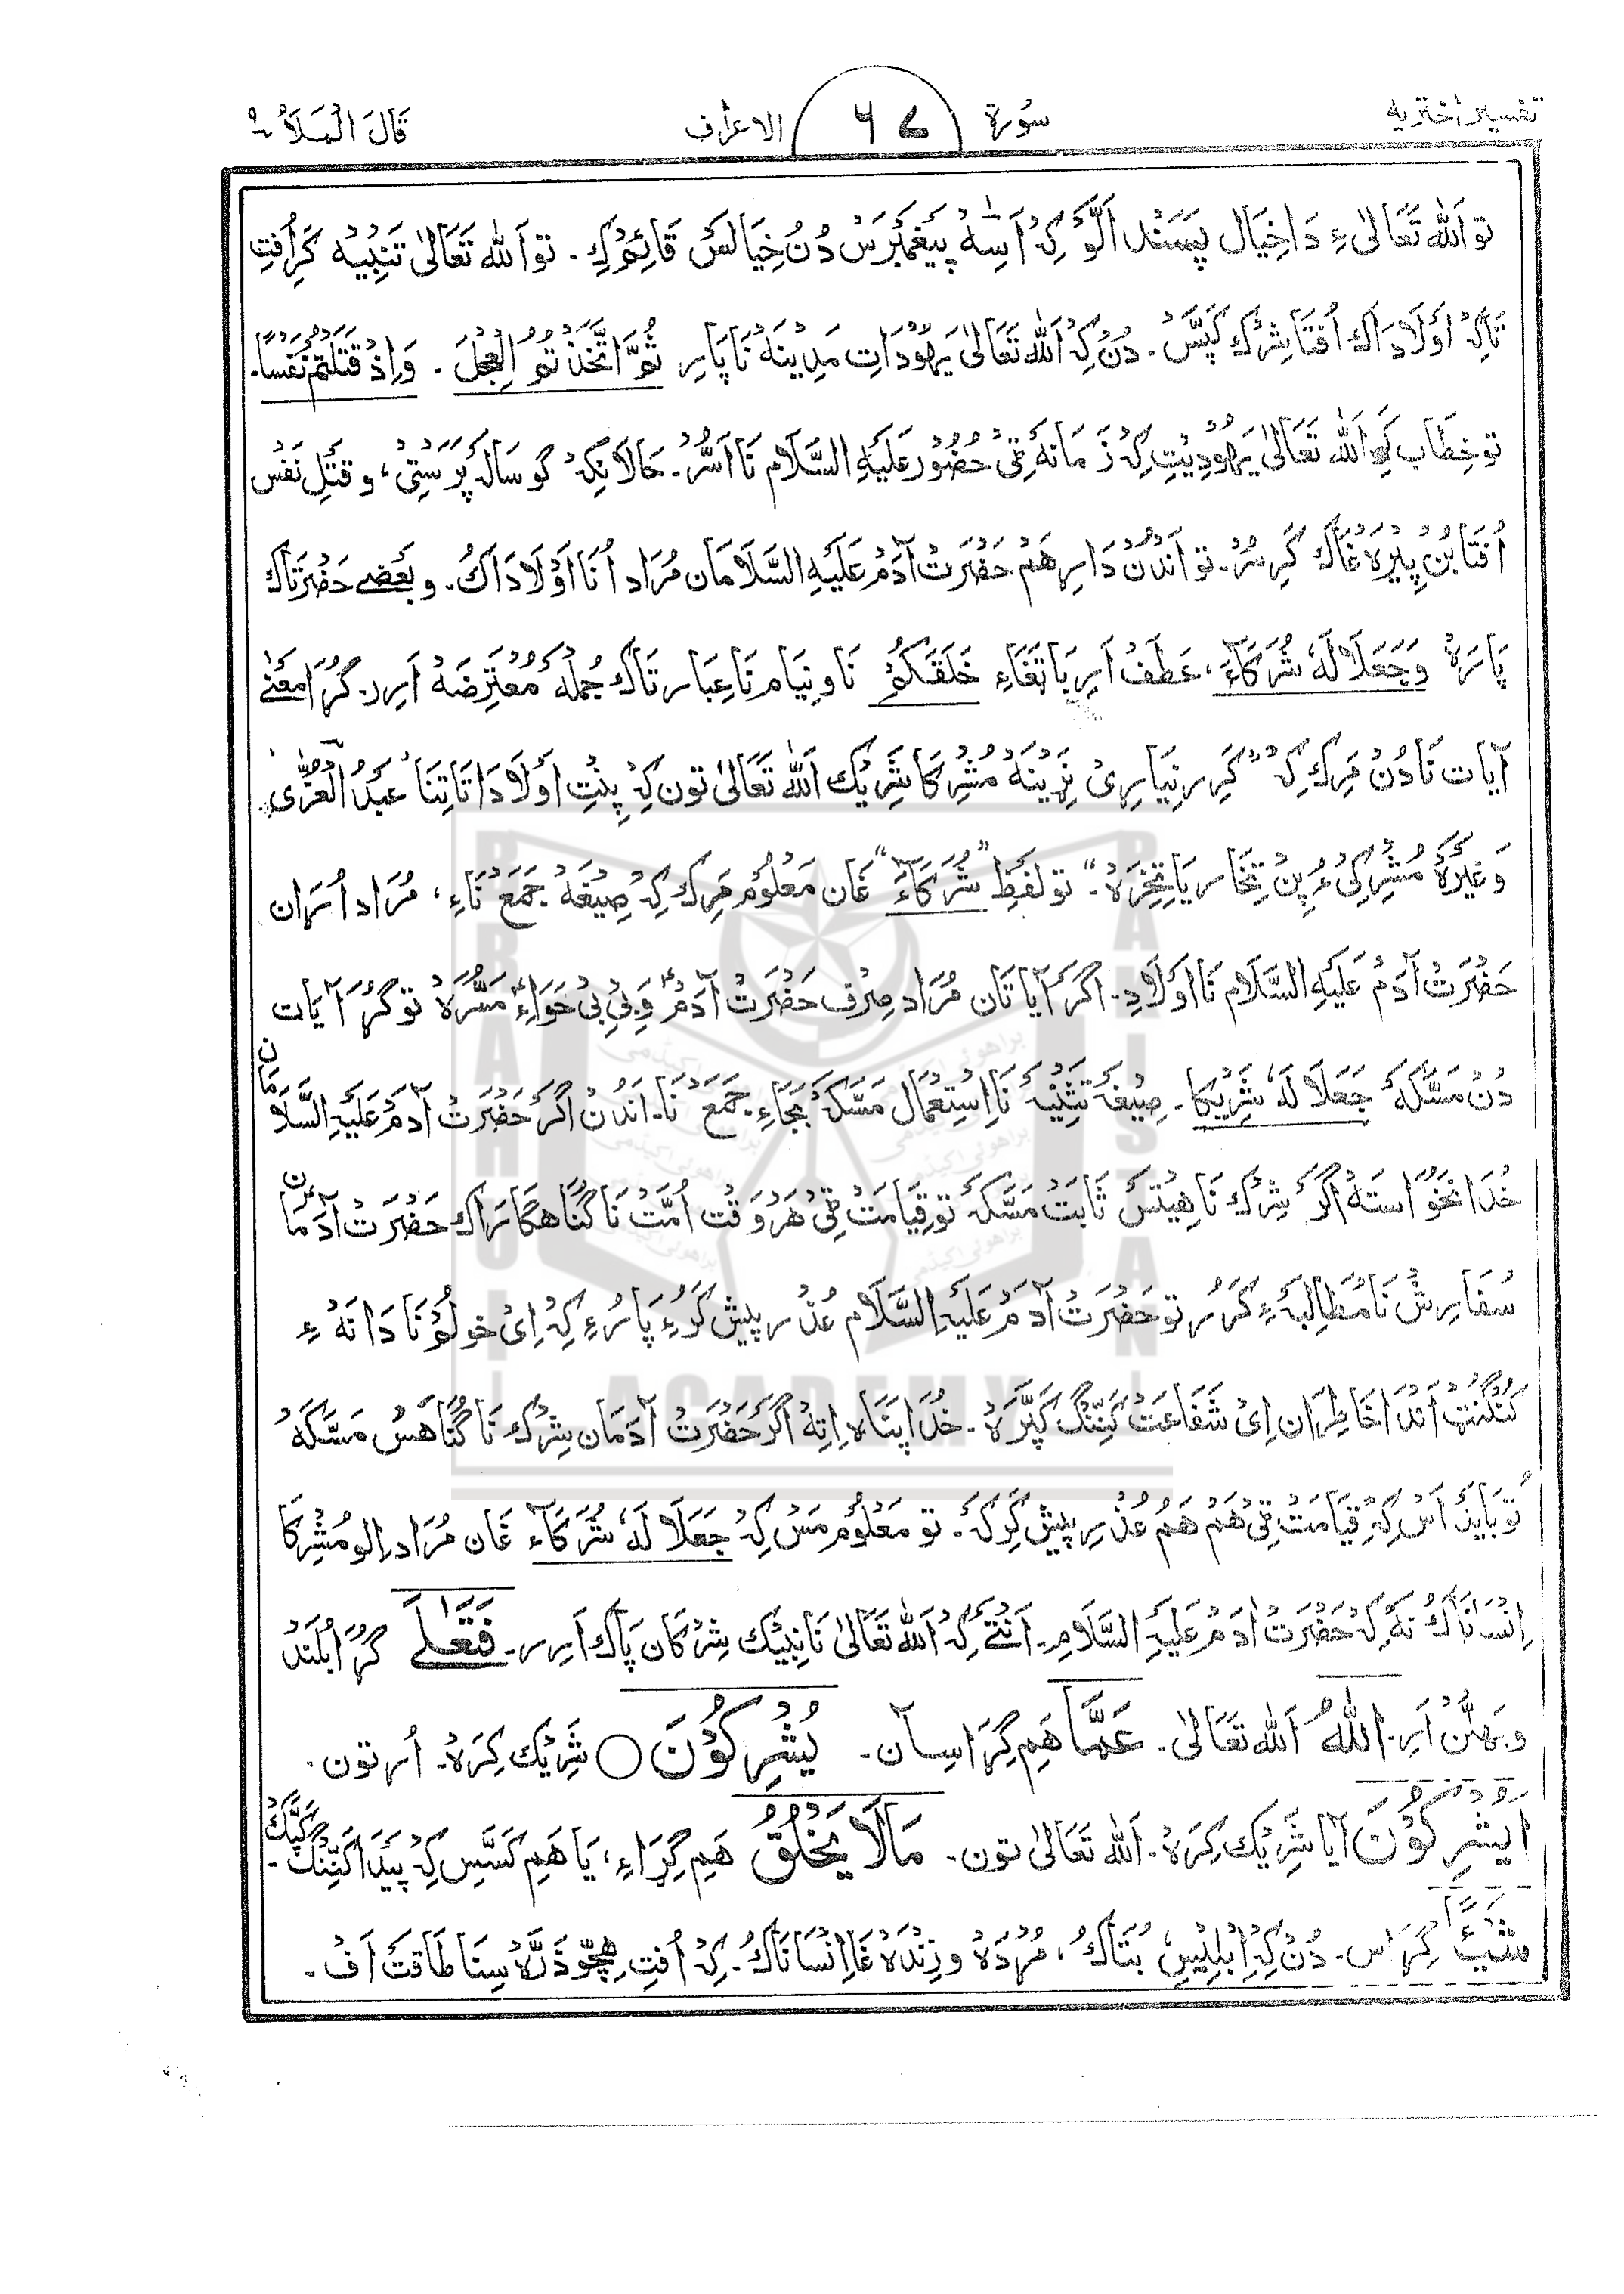 تفسیر اختریه سُورة ٦٧ الاعراف قَالَ الْمَلَاُ ٩
تو اَللّٰه تَعَالیٰ ءِ دَا خِیَال پَسَنْد اَلَّوْ کِہ اَسِہ پَیغَمْبَرَسْ دُنْ خِیَالَسْ قَائِم کِ۔ تو اَللّٰه تَعَالیٰ تَنْبِیْہ کَرِ اُفتِ
تَاکِہ اَوْلَادَاک اُفتَا شِرْک کَپَّسْ۔ دُنْ کِہ اَللّٰه تَعَالیٰ یَہُوْدَاتِ مَدِیْنَہ نَا پَارِ ثُمَّ اتَّخَذْتُمُ الْعِجْلَ۔ وَاِذْ قَتَلْتُمْ نَفْسًا۔
تو خِطَاب کِہ اَللّٰه تَعَالیٰ یَہُوْدِیْتِ کِہ زَمَانَہ ٹِیْ حُضُوْر عَلَیْهِ السَّلَام نَا اَسُّرْ۔ حَالَانِکِہ گوسَالَہ پَرَسْتِیْ، و قَتْلِ نَفْس
اُفتَا بُنْ پِیْرَہ غَاک کَرِسُرْ۔ تو اَنْدُنْ دَارِ هَمْ حَضْرَتْ آدَمْ عَلَیْهِ السَّلَامَان مُرَاد اُنَا اَوْلَادَاکُ۔ و بَعْضے حَضْرَتَاک
پَارَہ وَجَعَلَا لَهٗ شُرَكَآءَ، عَطَفْ اَرِ بَاتَغَاءِ خَلَقَكُمْ نَا و نِیَام نَا عِبَارتَاک جُمْلَہ مُعْتَرِضَہ اَرِر۔ گُڑَا مَعْنیٰ
آیات نَا دُنْ مَرِک کِہ "کَرِر نِیَارِیْ نِرِیْنَہ مُشْرِکَا شَرِیْک اَللّٰه تَعَالیٰ تون کِہ پِنْتِ اَوْلَادَاتَا تِنَا عَبْدُ الْعُزّٰی
وَغَیْرَہ مُشْرِکِی ءُ پِنْ تِخَار یَا تِخِرَہ"۔ تو لَفْظِ "شُرَكَآءَ" غَان مَعْلُوْم مَرِک کِہ صِیْغَہ جَمَعْ نَاءِ، مُرَاد اُسْرَان
حَضْرَتْ آدَمْ عَلَیْهِ السَّلَام نَا اَوْلَادِ۔ اَگَرْ آیاتَان مُرَاد صِرْف حَضْرَتْ آدَمْؑ وَ بِیْ بِیْ حَوَاءؑ مَسُّرَہ تو گُڑَا آیَات
دُنْ مَسَّکَہ جَعَلَا لَهٗ شَرِیْکًا۔ صِیْغَہ تَثْنِیَہ نَا اِسْتِعْمَال مَسَّکَہ بَجَاءِ جَمَعْ نَا۔ اَنْدُنْ اَگَرْ حَضْرَتْ آدَمْ عَلَیْهِ السَّلَامَان
خُدَانَخَوَاسْتَہ اَگَرْ شِرْک نَا هِیْتَسْ ثَابَتْ مَسَّکَہ تو قِیَامَتْ ٹِیْ هَرْوَقْت اُمَّتْ نَا گُنَاهگَارَاک حَضْرَتْ آدَمَان
سُفَارِشْ نَا مُطَالِبَہ ءِ کَرُر تو حَضْرَتْ آدَمْ عَلَیْهِ السَّلَام عُذْر پیش کَرُءِ پَارُءِ کِہ اِیْ خولُمْ نَا دَانَہ ءِ
کُنْگُنْٹ اَنْدَا خَاطِرَان اِیْ شَفَاعَتْ کَنِّنْگ کَپَّرَہ۔ خُدَا پَنَاہ اِتِہ اَگَرْ حَضْرَتْ آدَمَان شِرْک نَا گُنَاهَسْ مَسَّکَہ
تُو بَایَدْ اَسْ کِہ قِیَامَتْ ٹِیْ هَمْ هَمُ عُذْرِ پیش کَرِکَہ۔ تو مَعْلُوْم مَسْ کِہ جَعَلَا لَهٗ شُرَكَآءَ غَان مُرَاد اِلو مُشْرِکَا
اِنْسَانَاکُ نَہ کِہ حَضْرَتْ اٰدَمْ عَلَیْهِ السَّلَامِ۔ اَنْتَے کِہ اَللّٰه تَعَالیٰ نَا نَبِیْک شِرْکَان پَاک اَرِر۔ فَتَعٰلَى گُڑَا بُلَنْد
و بَہَلُّنْ اَرِ۔ اللّٰهُ اَللّٰه تَعَالیٰ۔ عَمَّا هَمِ گِرَاسَان۔ یُشْرِكُوْنَ ○ شَرِیْک کِرَہ۔ اُرتون۔
اَیُشْرِكُوْنَ آیا شَرِیْک کِرَہ۔ اَللّٰه تَعَالیٰ تون۔ مَالَا یَخْلُقُ هَمِ گِرَاءِ، یَا هَمِ کَسَّسِ کِہ پَیْدَا کَنِّنْگ کَپَّکْ۔
شَیْئًا گِرَاس۔ دُنْ کِہ اِبْلِیْس، بُتَاکُ، مُرْدَہ و زِنْدَہ غَا اِنْسَانَاکُ۔ کِہ اُفتِ هِچُّو ذَرَّہ سِنَا طَاقَتْ اَفْ۔
BRAHUI ACADEMY PAKISTAN
براهوئی اکیڈمی